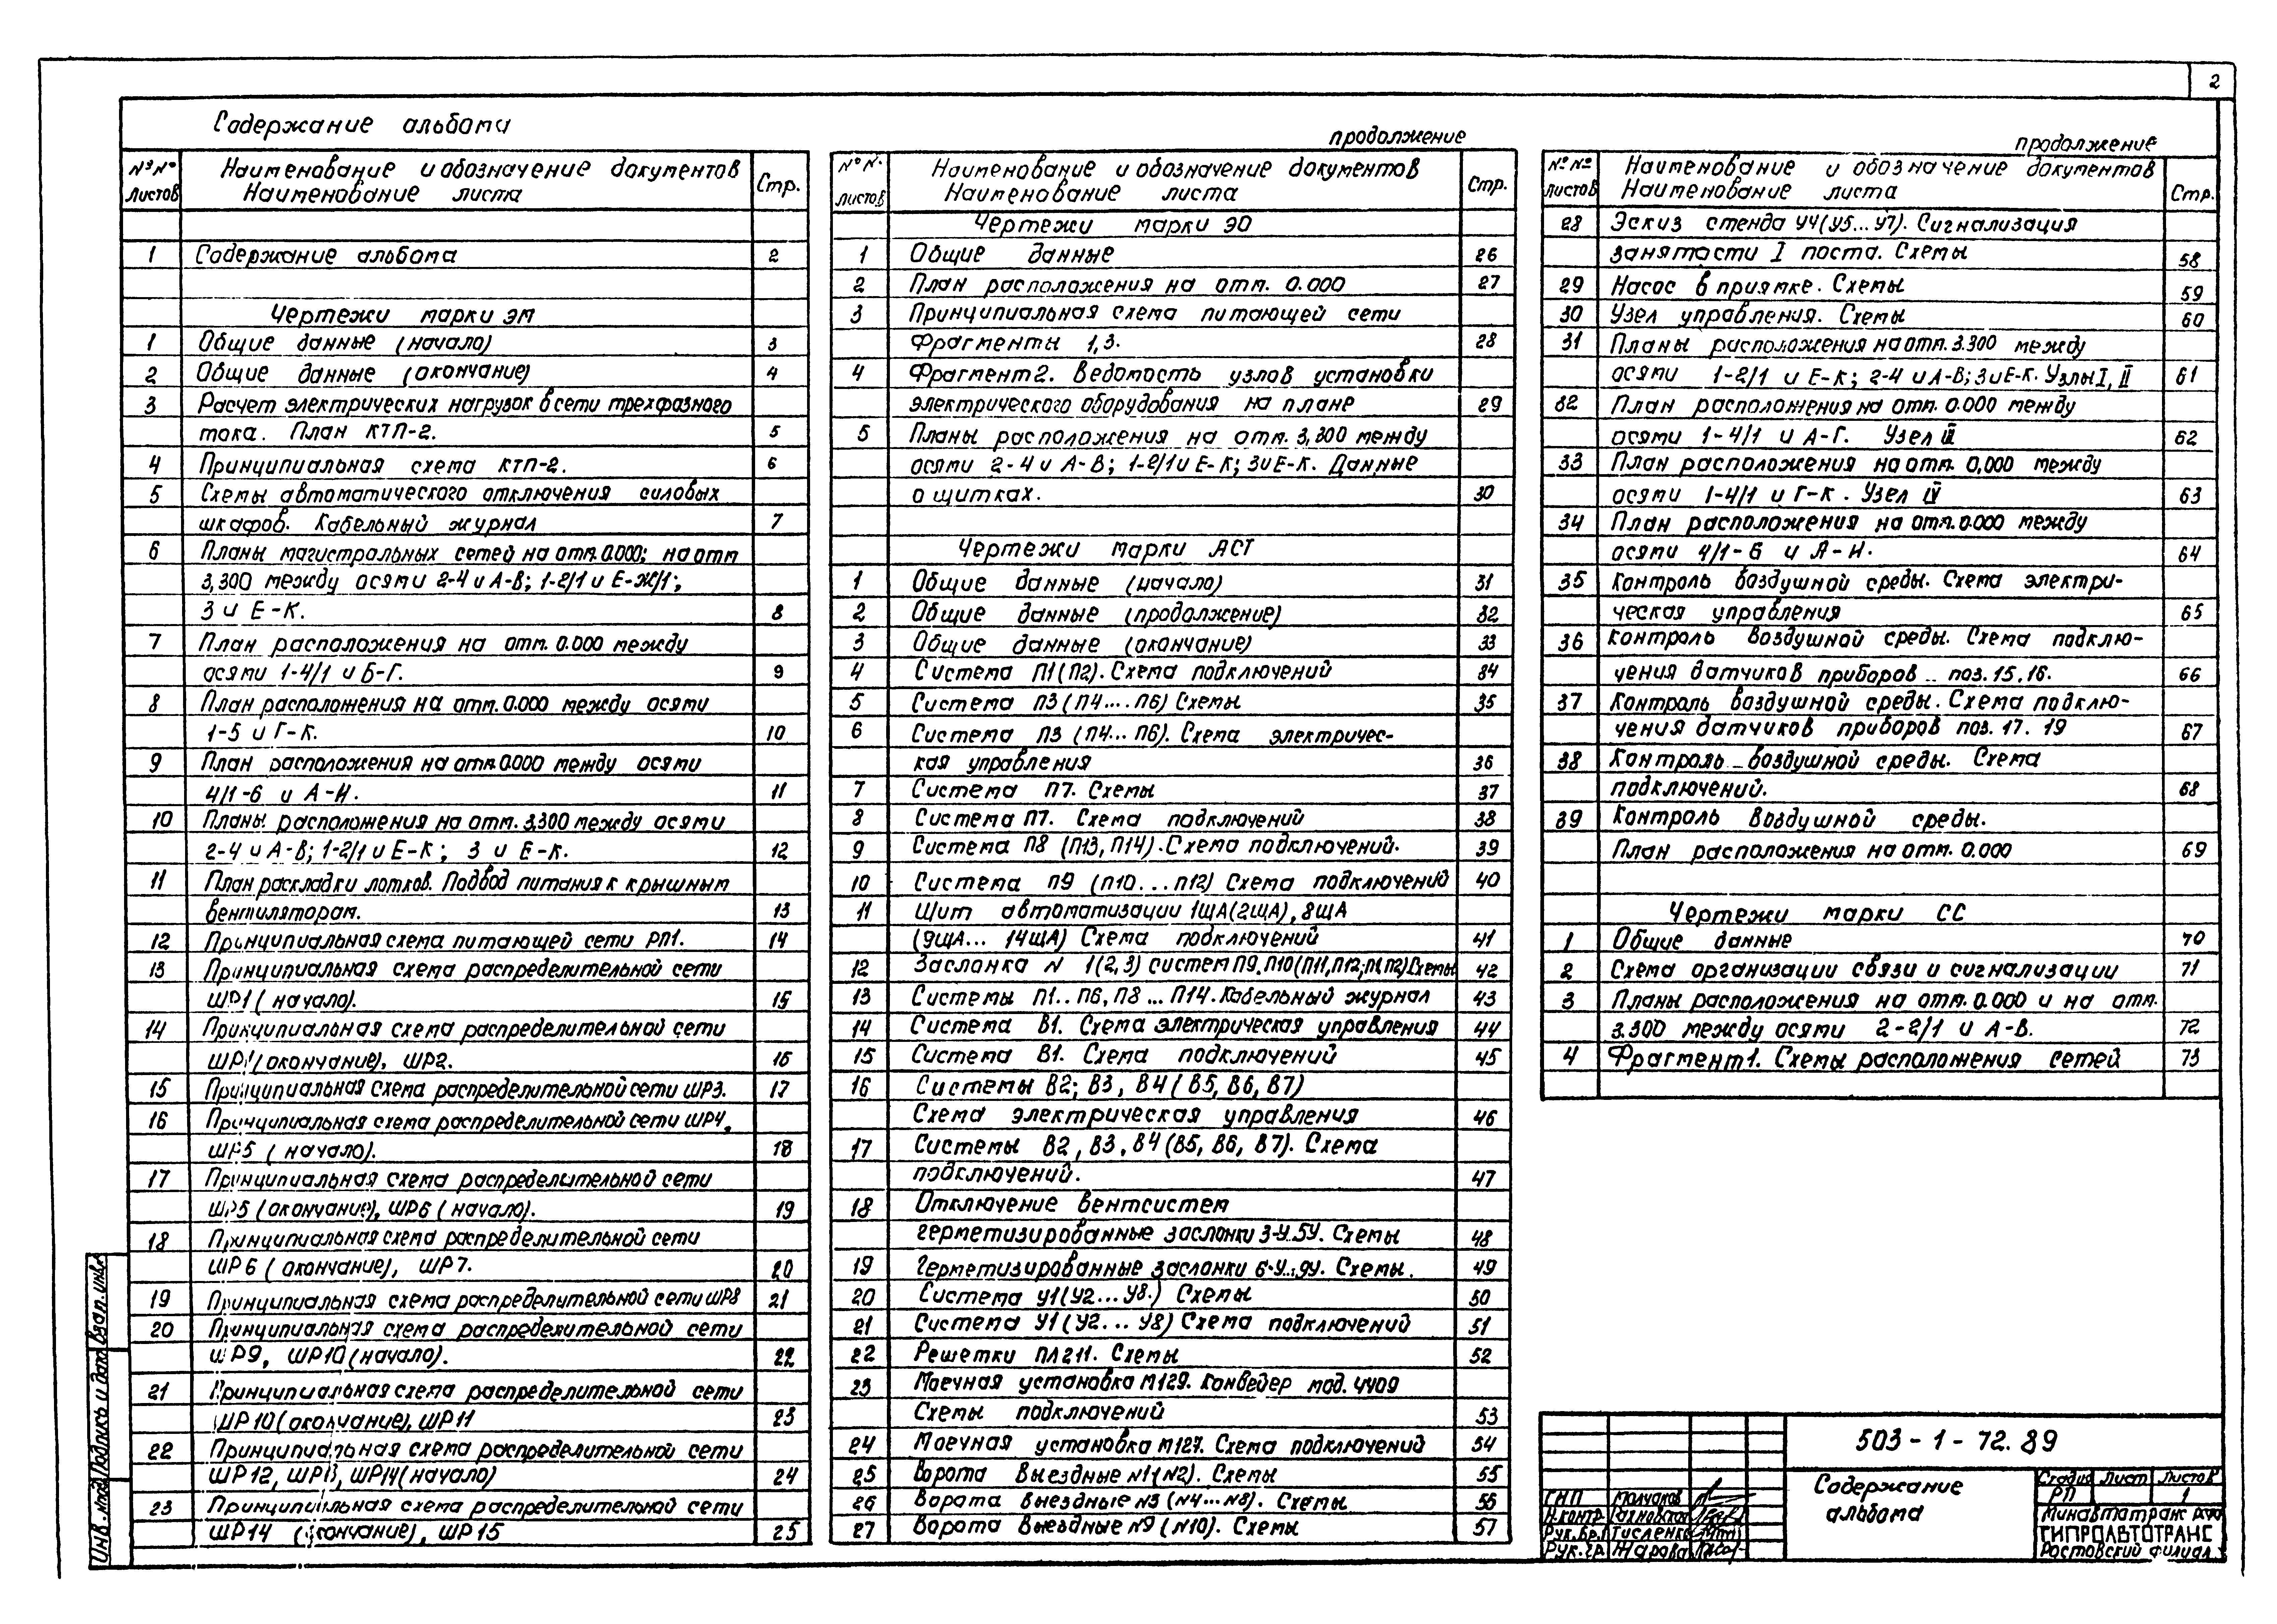 2
Содержание альбома
№№ листов
Наименование и обозначение документов
Наименование листа
Стр.
1 Содержание альбома 2
Чертежи марки ЭМ
1 Общие данные (начало) 3
2 Общие данные (окончание) 4
3 Расчет электрических нагрузок в сети трехфазного
тока. План КТП-2. 5
4 Принципиальная схема КТП-2. 6
5 Схемы автоматического отключения силовых
шкафов. Кабельный журнал 7
6 Планы магистральных сетей на отм. 0.000; на отм
3,300 между осями 2-4 и А-В; 1-2/1 и Е-Ж/1;
3 и Е-К. 8
7 План расположения на отм. 0.000 между
осями 1-4/1 и Б-Г. 9
8 План расположения на отм. 0.000 между осями
1-5 и Г-К. 10
9 План расположения на отм 0.000 между осями
4/1-6 и А-И. 11
10 Планы расположения на отм. 3,300 между осями
2-4 и А-В; 1-2/1 и Е-К; 3 и Е-К. 12
11 План раскладки лотков. Подвод питания к крышным
вентиляторам. 13
12 Принципиальная схема питающей сети РП1. 14
13 Принципиальная схема распределительной сети
ШР1 (начало). 15
14 Принципиальная схема распределительной сети
ШР1 (окончание), ШР2. 16
15 Принципиальная схема распределительной сети ШР3. 17
16 Принципиальная схема распределительной сети ШР4,
ШР5 (начало). 18
17 Принципиальная схема распределительной сети
ШР5 (окончание), ШР6 (начало). 19
18 Принципиальная схема распределительной сети
ШР6 (окончание), ШР7. 20
19 Принципиальная схема распределительной сети ШР8 21
20 Принципиальная схема распределительной сети
ШР9, ШР10 (начало). 22
21 Принципиальная схема распределительной сети
ШР10 (окончание), ШР11 23
22 Принципиальная схема распределительной сети
ШР12, ШР13, ШР14 (начало) 24
23 Принципиальная схема распределительной сети
ШР14 (окончание), ШР15 25
продолжение
№№ листов
Наименование и обозначение документов
Наименование листа
Стр.
Чертежи марки ЭО
1 Общие данные 26
2 План расположения на отм. 0.000 27
3 Принципиальная схема питающей сети
Фрагменты 1,3. 28
4 Фрагмент 2. Ведомость узлов установки
электрического оборудования на плане 29
5 Планы расположения на отм. 3,300 между
осями 2-4 и А-В; 1-2/1 и Е-К; 3 и Е-К. Данные
о щитках. 30
Чертежи марки АСТ
1 Общие данные (начало) 31
2 Общие данные (продолжение) 32
3 Общие данные (окончание) 33
4 Система П1 (П2). Схема подключений 34
5 Система П3 (П4....П6) Схемы 35
6 Система П3 (П4...П6). Схема электричес-
кая управления 36
7 Система П7. Схемы 37
8 Система П7. Схема подключений 38
9 Система П8 (П13, П14). Схема подключений. 39
10 Система П9 (П10...П12) Схема подключений 40
11 Щит автоматизации 1ЩА (2ЩА), 8ЩА
(9ЩА... 14ЩА) Схема подключений 41
12 Заслонка N 1(2,3) систем П9, П10 (П11, П12; П1, П2) Схемы 42
13 Системы П1..П6, П8...П14. Кабельный журнал 43
14 Система В1. Схема электрическая управления 44
15 Система В1. Схема подключений 45
16 Системы В2; В3, В4 (В5, В6, В7)
Схема электрическая управления 46
17 Системы В2, В3, В4 (В5, В6, В7). Схема
подключений. 47
18 Отключение вентсистем
герметизированные заслонки 3-У.5У. Схемы 48
19 Герметизированные заслонки 6-У..9У. Схемы. 49
20 Система У1 (У2...У8.) Схемы 50
21 Система У1 (У2... У8) Схема подключений 51
22 Решетки ПЛ211. Схемы 52
23 Моечная установка М129. Конвейер мод. 4409
Схемы подключений 53
24 Моечная установка М127. Схема подключений 54
25 Ворота выездные N1 (N2). Схемы 55
26 Ворота выездные N3 (N4...N8). Схемы 56
27 Ворота выездные N9 (N10). Схемы 57
продолжение
№№ листов
Наименование и обозначение документов
Наименование листа
Стр.
28 Эскиз стенда У4 (У5...У7). Сигнализация
занятости I поста. Схемы 58
29 Насос в приямке. Схемы 59
30 Узел управления. Схемы 60
31 Планы расположения на отм. 3.300 между
осями 1-2/1 и Е-К; 2-4 и А-В; 3 и Е-К. Узлы I, II 61
32 План расположения на отм. 0.000 между
осями 1-4/1 и А-Г. Узел III 62
33 План расположения на отм. 0,000 между
осями 1-4/1 и Г-К. Узел IV 63
34 План расположения на отм. 0.000 между
осями 4/1-6 и А-И. 64
35 Контроль воздушной среды. Схема электри-
ческая управления 65
36 Контроль воздушной среды. Схема подклю-
чения датчиков приборов поз. 15, 16. 66
37 Контроль воздушной среды. Схема подклю-
чения датчиков приборов поз. 17. 19 67
38 Контроль воздушной среды. Схема
подключений. 68
39 Контроль воздушной среды.
План расположения на отм. 0.000 69
Чертежи марки СС
1 Общие данные 70
2 Схема организации связи и сигнализации 71
3 Планы расположения на отм. 0.000 и на отм.
3.300 между осями 2-2/1 и А-В. 72
4 Фрагмент 1. Схемы расположения сетей 73
503-1-72.89
Содержание
альбома
Стадия Лист Листов
РП 1
Минавтотранс
ГИПРОАВТОТРАНС
Ростовский филиал
ГИП Молчанов
Н.контр.
Рук.бр.
Рук.гр. Жарова
Взам. инв.
Подпись и дата
Инв. № под